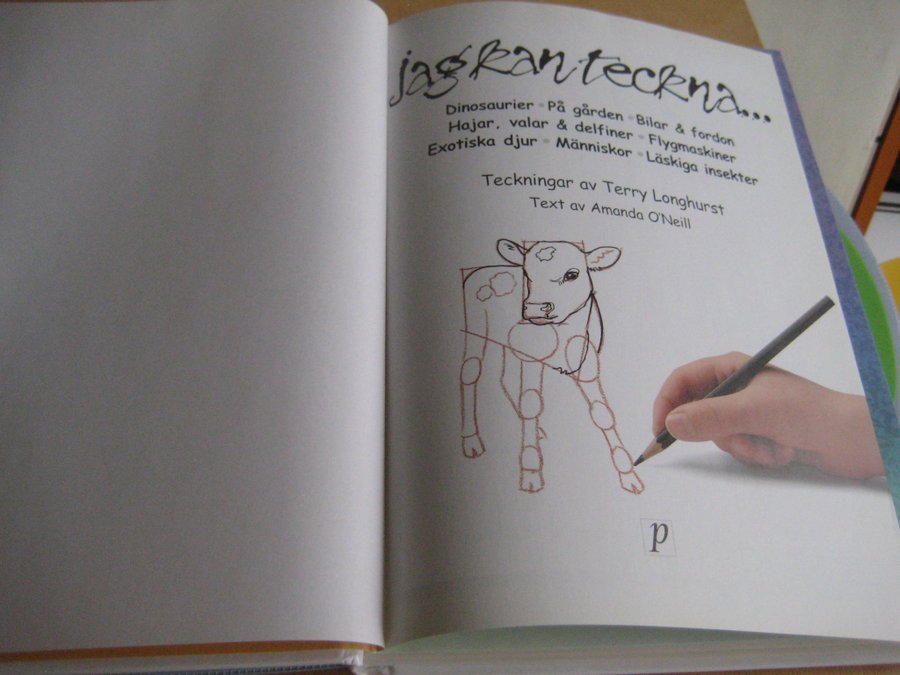 jag kan teckna...
Dinosaurier • På gården • Bilar & fordon
Hajar, valar & delfiner • Flygmaskiner
Exotiska djur • Människor • Läskiga insekter
Teckningar av Terry Longhurst
Text av Amanda O'Neill
p